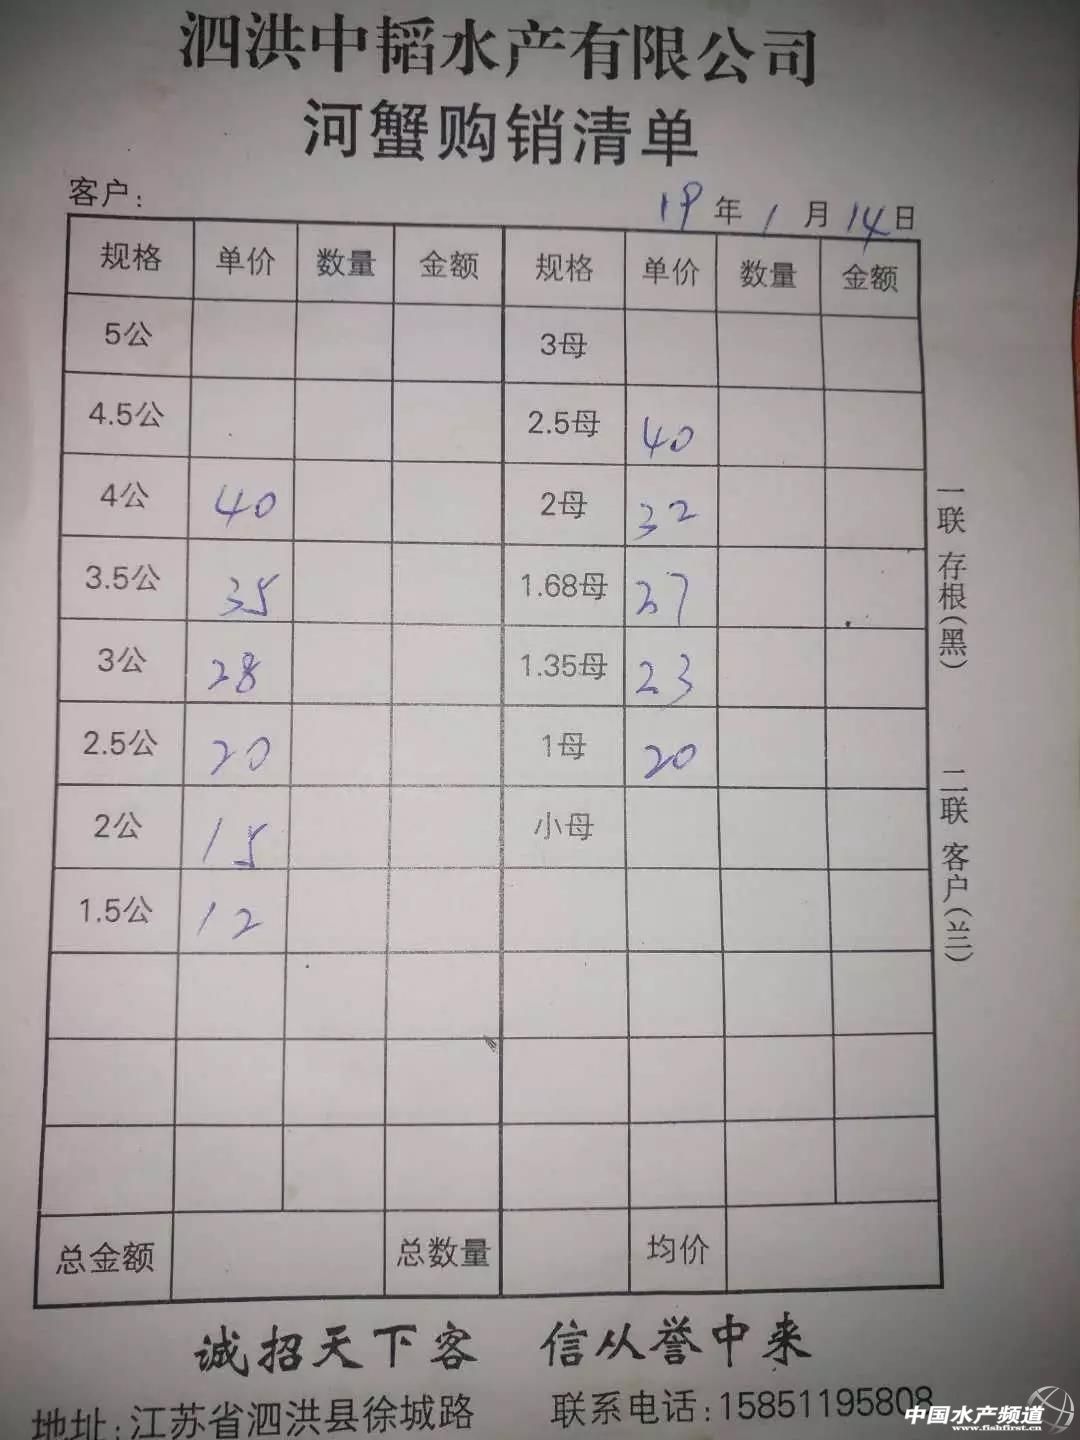 泗洪中韬水产有限公司
河蟹购销清单
客户: 19年1月14日
规格 单价 数量 金额 规格 单价 数量 金额
5公 3母
4.5公 2.5母 40
4公 40 2母 32
3.5公 35 1.68母 27
3公 28 1.35母 23
2.5公 20 1母 20
2公 15 小母
1.5公 12
总金额 总数量 均价
一联 存根(黑) 二联 客户(兰)
诚招天下客 信从誉中来
地址:江苏省泗洪县徐城路 联系电话:15851195808
中国水产频道
www.fishfirst.cn